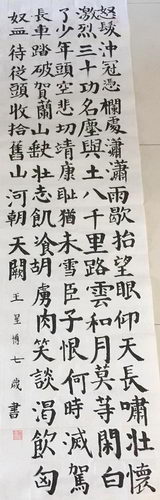 怒髮沖冠憑欄處瀟瀟雨歇抬望眼仰天長嘯壯懷
激烈三十功名塵與土八千里路雲和月莫等閑白
了少年頭空悲切靖康耻猶未雪臣子恨何時滅駕
長車踏破賀蘭山缺壯志飢餐胡虜肉笑談渴飲匈
奴血待從頭收拾舊山河朝天闕
王星博七歲書